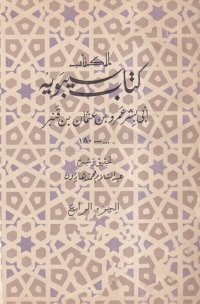 الكتاب
كتاب سيبويه
أبي بشر عمرو بن عثمان بن قنبر
... - ١٨٠
تحقيق وشرح
عبد السلام محمد هارون
الجزء الرابع